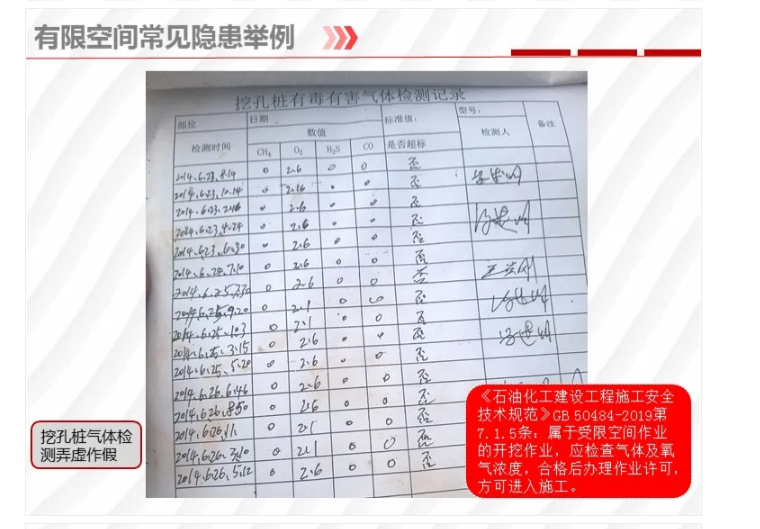 有限空间常见隐患举例
挖孔桩有毒有害气体检测记录
部位 日期 标准值: 型号:
检测时间 数值 是否超标 检测人 备注
CH₄ O₂ H₂S CO
2014.6.23.8.14 0 2.6 0 0 否
2014.6.23.10.14 否
2.6 否
2.6 否
2014.6.23.6.30 2.6 0 0 否
2014.6.24.7.10 0 2.6 0 0 否
0 2.6 0 0 否
0 2.1 0 否
0 2.1 0 0 否
2014.6.25.3.15 0 2.6 否
2014.6.25.5.20 0 2.6 0 否
2014.6.26.6.46 0 2.6 0 0 否
2014.6.26.8.50 0 2.6 0 0 否
0 2.1 0 0 否
2014.6.26.3.10 0 2.1 0 0 否
2014.6.26.5.12 0 2.6 0 0 否
挖孔桩气体检
测弄虚作假
《石油化工建设工程施工安全
技术规范》GB 50484-2019第
7.1.5条：属于受限空间作业
的开挖作业，应检查气体及氧
气浓度，合格后办理作业许可，
方可进入施工。